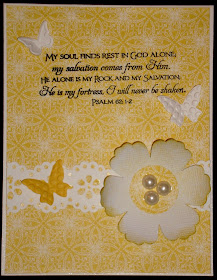 My soul finds rest in God alone;
my salvation comes from Him.
He alone is my Rock and my Salvation;
He is my fortress, I will never be shaken.
Psalm 62:1-2